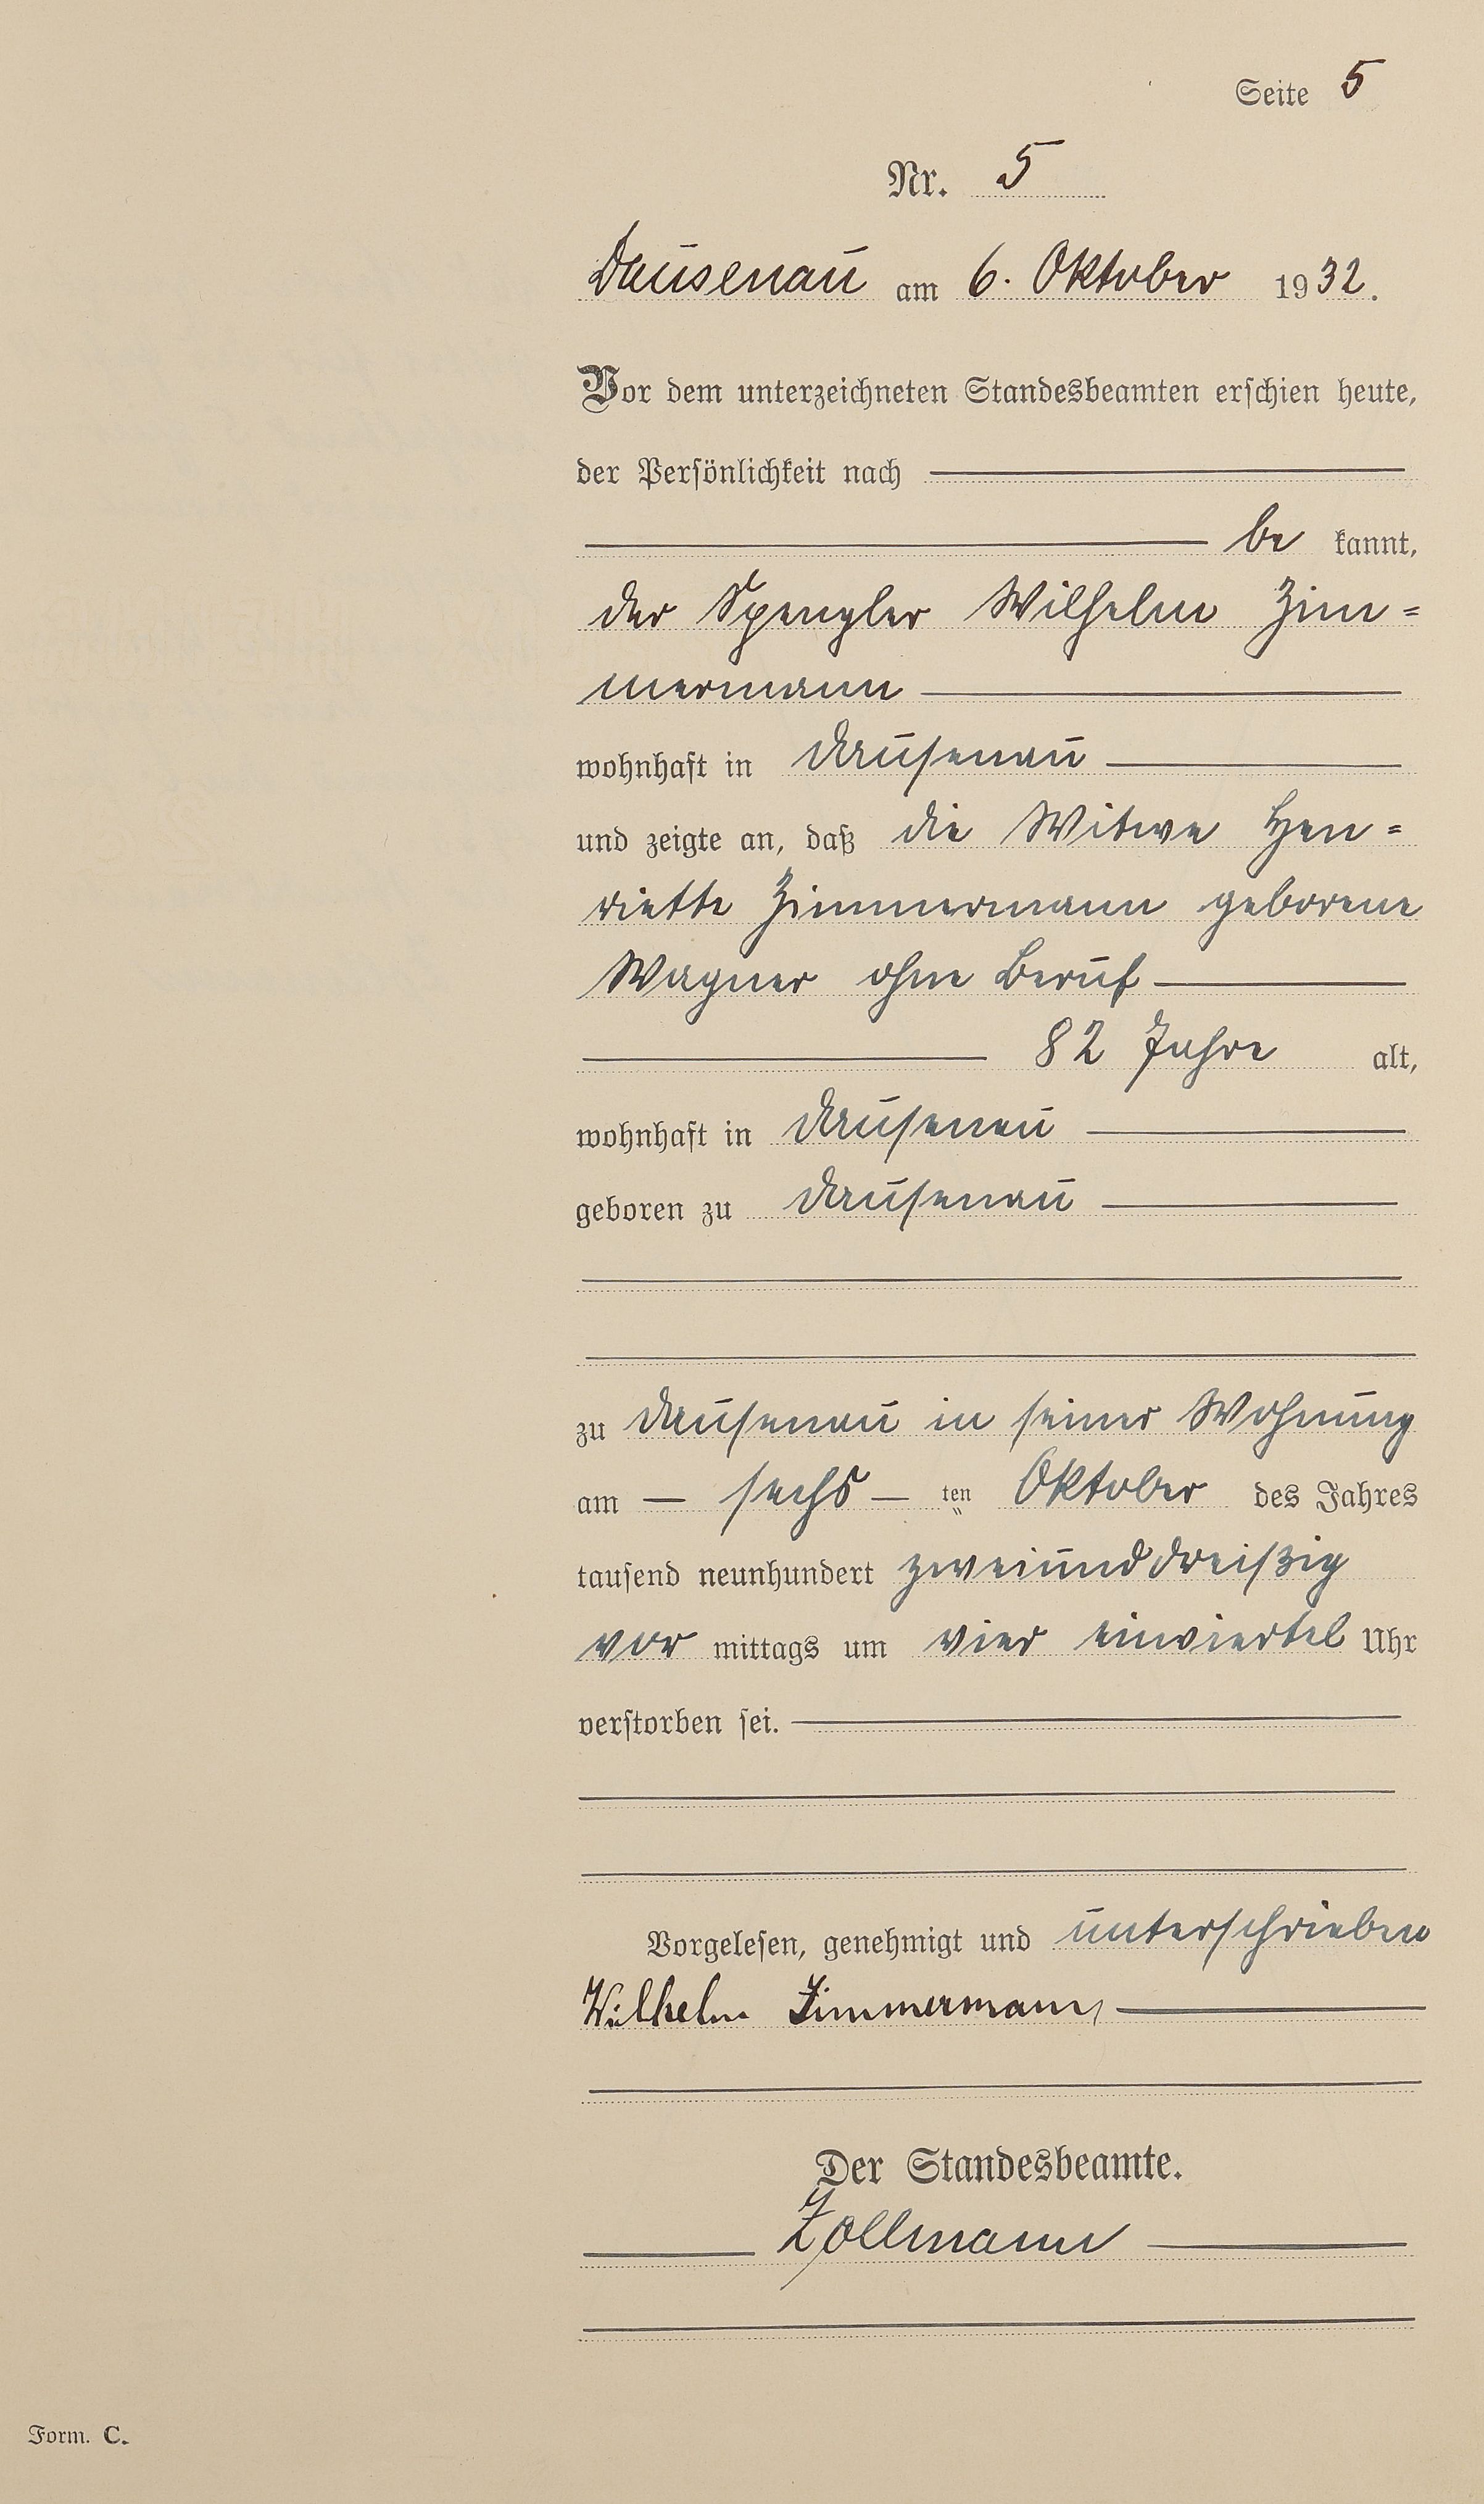 Seite 5
Nr. 5
Dausenau am 6. Oktober 1932.
Vor dem unterzeichneten Standesbeamten erschien heute,
der Persönlichkeit nach
be kannt,
der Spengler Wilhelm Zim=
mermann
wohnhaft in Dausenau
und zeigte an, daß die Witwe Hen=
riette Zimmermann geborene
Wagner ohne Beruf
82 Jahre alt,
wohnhaft in Dausenau
geboren zu Dausenau
zu Dausenau in seiner Wohnung
am — sechs — ten Oktober des Jahres
tausend neunhundert zweiunddreißig
vor mittags um vier einviertel Uhr
verstorben sei.
Vorgelesen, genehmigt und unterschrieben
Wilhelm Zimmermann
Der Standesbeamte.
Zollmann
Form. C.